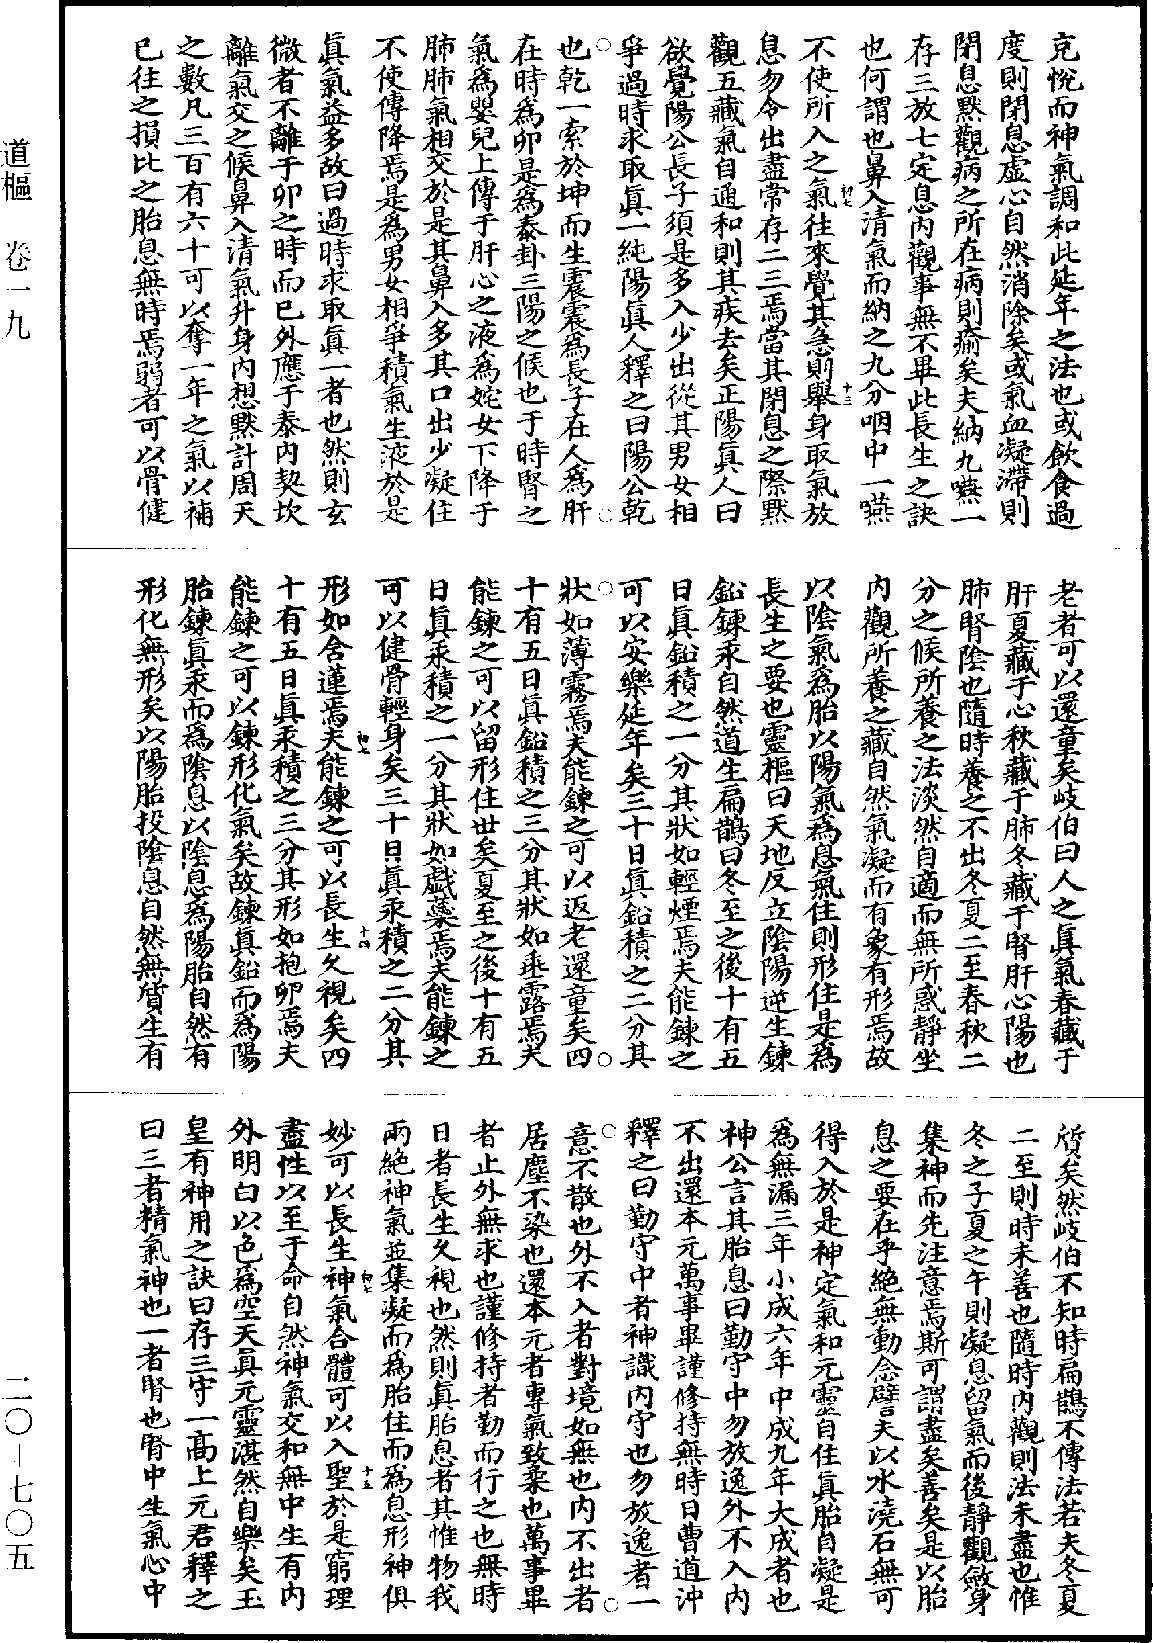 道樞　卷一九
二〇—七〇五
充悅而神氣調和此延年之法也或飲食過
度則閉息虛心自然消除矣或氣血凝滯則
閉息黙觀病之所在病則瘉矣夫納九嚥一
存三放七定息內觀事無不畢此長生之訣
也何謂也鼻入清氣而納之九分咽中一嚥
不使所入之氣往來覺其急則舉身取氣放
息勿令出盡常存二三焉當其閉息之際黙
觀五藏氣自通和則其疾去矣正陽眞人曰
欲覺陽公長子須是多入少出從其男女相
爭過時求取眞一純陽眞人釋之曰陽公乾
也乾一索於坤而生震震爲長子在人爲肝
在時爲卯是爲泰卦三陽之候也于時腎之
氣爲嬰兒上傳于肝心之液爲姹女下降于
肺肺氣相交於是其鼻入多其口出少凝住
不使傳降焉是爲男女相爭積氣生液於是
眞氣益多故曰過時求取眞一者也然則玄
微者不離于卯之時而已外應于泰內契坎
離氣交之候鼻入清氣升身內想黙計周天
之數凡三百有六十可以奪一年之氣以補
已往之損比之胎息無時焉弱者可以骨健
老者可以還童矣岐伯曰人之眞氣春藏于
肝夏藏于心秋藏于肺冬藏于腎肝心陽也
肺腎陰也隨時養之不出冬夏二至春秋二
分之候所養之法淡然自適而無所惑靜坐
內觀所養之藏自然氣凝而有象有形焉故
以陰氣爲胎以陽氣爲息氣住則形住是爲
長生之要也靈樞曰天地反立陰陽逆生鍊
鉛鍊汞自然道生扁鵲曰冬至之後十有五
日眞鉛積之一分其狀如輕煙焉夫能鍊之
可以安樂延年矣三十日眞鉛積之二分其
狀如薄霧焉夫能鍊之可以返老還童矣四
十有五日眞鉛積之三分其狀如垂露焉夫
能鍊之可以留形住世矣夏至之後十有五
日眞汞積之一分其狀如戲藥焉夫能鍊之
可以健骨輕身矣三十日眞汞積之二分其
形如含蓮焉夫能鍊之可以長生久視矣四
十有五日眞汞積之三分其形如抱卵焉夫
能鍊之可以鍊形化氣矣故鍊眞鉛而爲陽
胎鍊眞汞而爲陰息以陰息爲陽胎自然有
形化無形矣以陽胎投陰息自然無質生有
質矣然岐伯不知時扁鵲不傳法若夫冬夏
二至則時未善也隨時內觀則法未盡也惟
冬之子夏之午則凝息留氣而後靜觀斂身
集神而先注意焉斯可謂盡矣善矣是以胎
息之要在乎絕無動念譬夫以水澆石無可
得入於是神定氣和元靈自住眞胎自凝是
爲無漏三年小成六年中成九年大成者也
神公言其胎息曰勤守中勿放逸外不入內
不出還本元萬事畢謹修持無時日曹道沖
釋之曰勤守中者神識內守也勿放逸者一
意不散也外不入者對境如無也內不出者
居塵不染也還本元者專氣致柔也萬事畢
者止外無求也謹修持者勤而行之也無時
日者長生久視也然則眞胎息者其惟物我
兩絕神氣並集凝而爲胎住而爲息形神俱
妙可以長生神氣合體可以入聖於是窮理
盡性以至于命自然神氣交和無中生有內
外明白以色爲空天眞元靈湛然自樂矣玉
皇有神用之訣曰存三守一高上元君釋之
曰三者精氣神也一者腎也腎中生氣心中